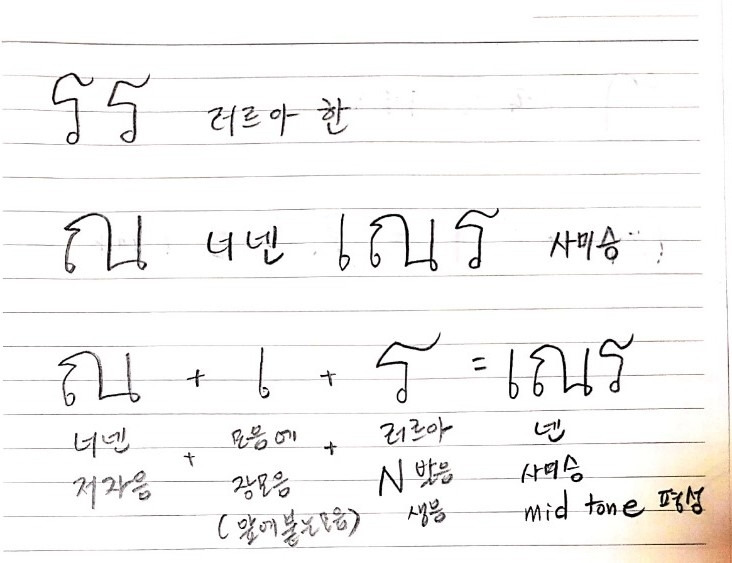 รร 러르아 한
ณ 너넨 เณร 사미승
ณ + เ + ร = เณร
너넨 + 모음에 + 러르아 넨
저자음 장모음 N 발음 사미승
(앞에 붙는 모음) 생음 mid tone 평성